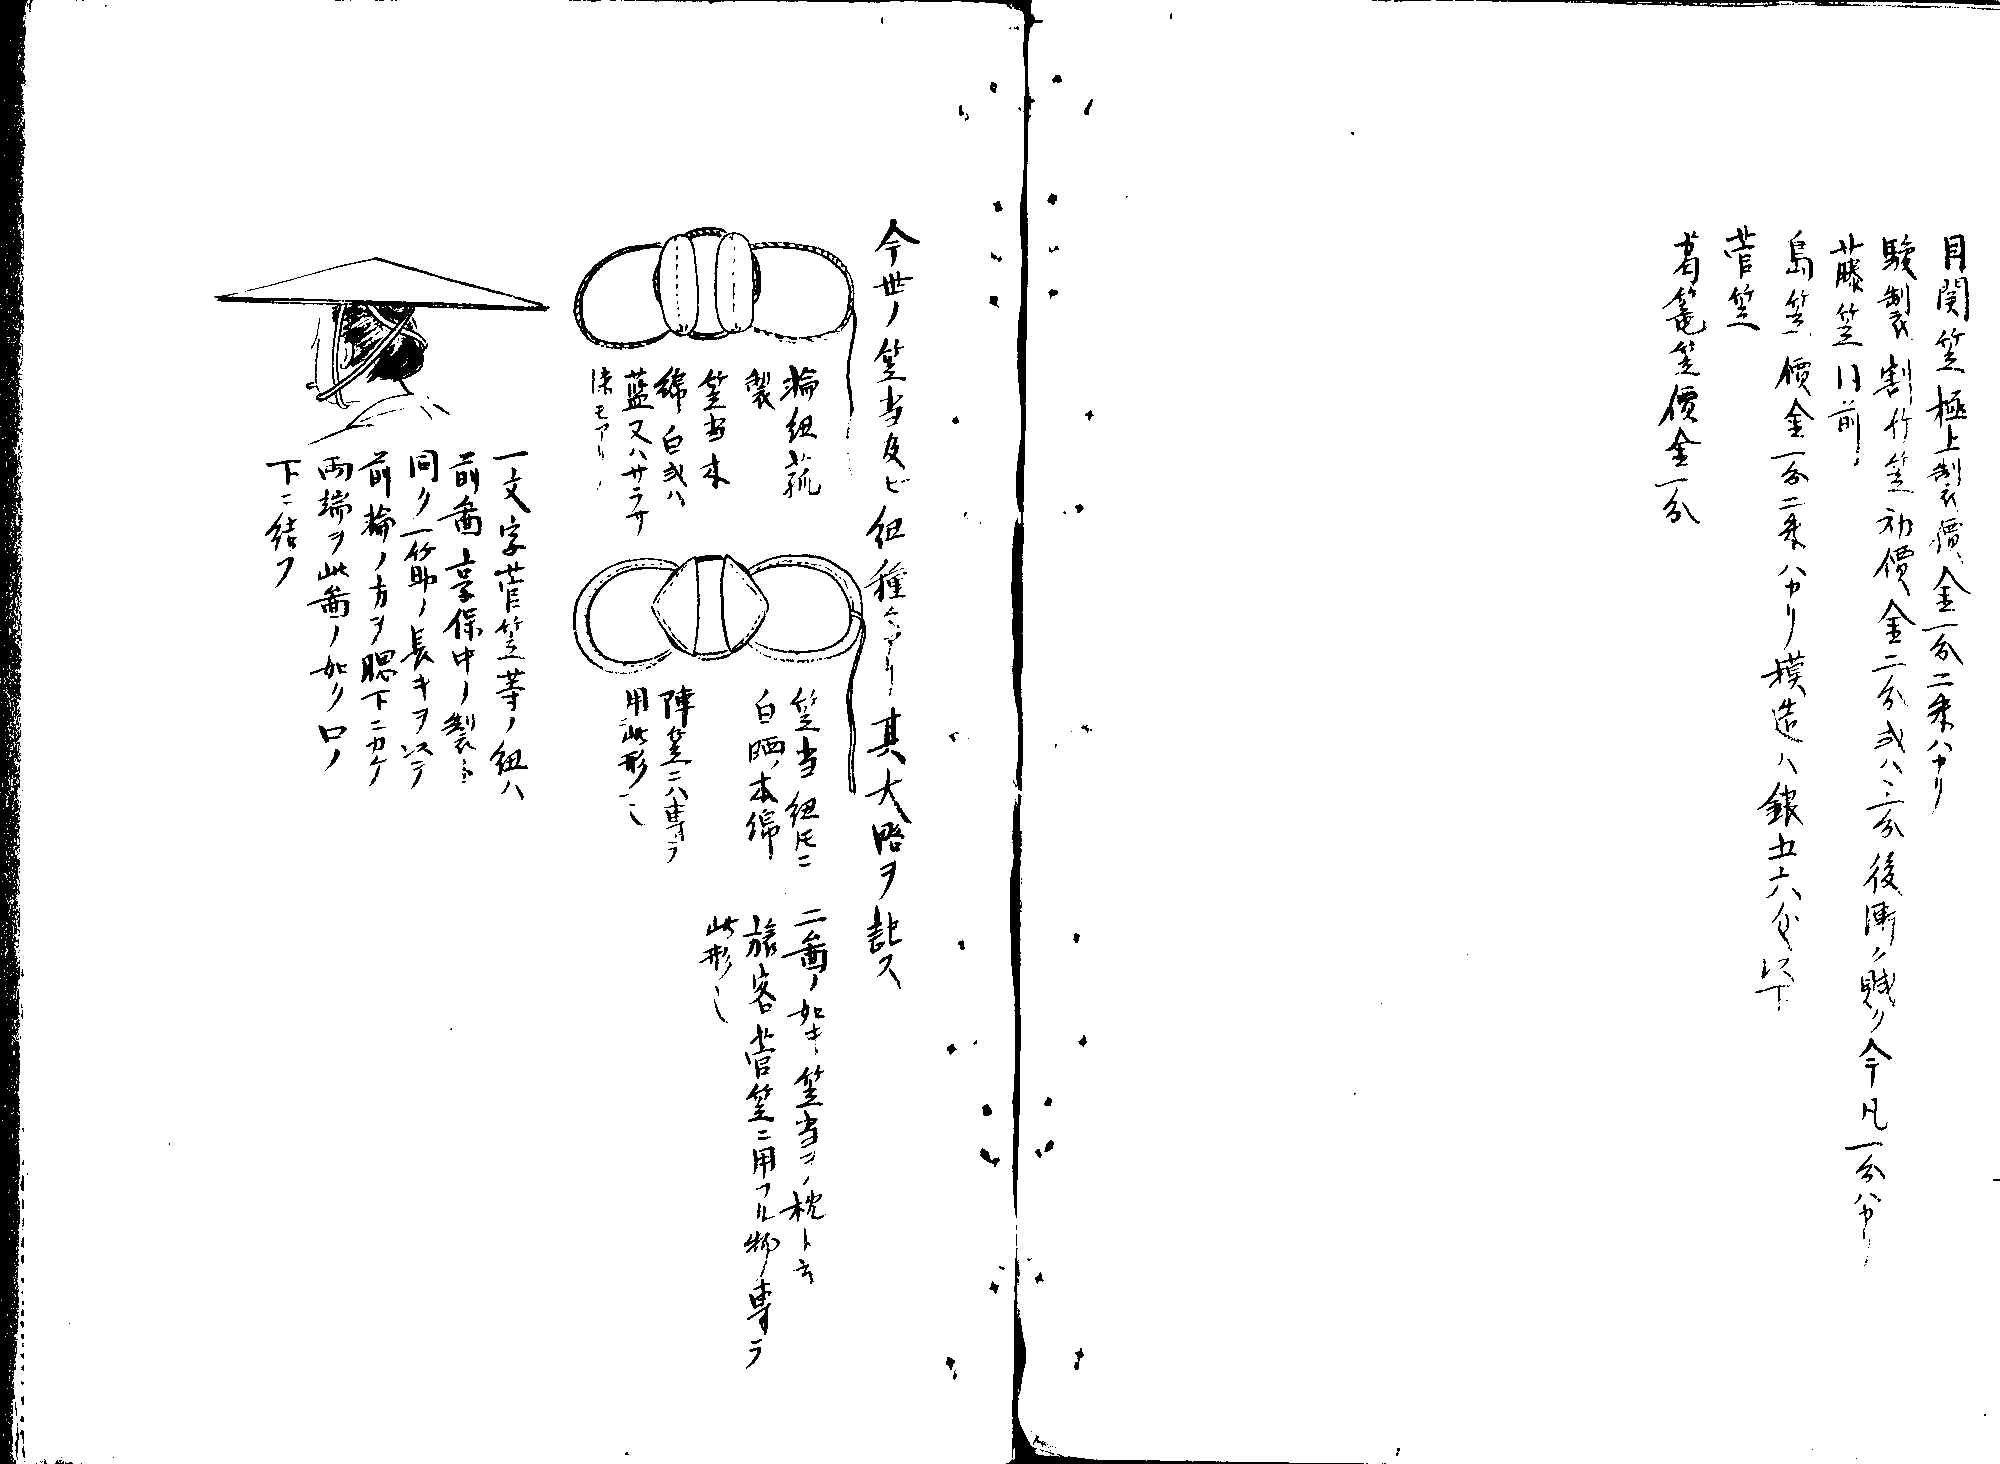 目関笠極上製價金一分二朱ハカリ
駿製割竹笠初價金二分或ハ三分後漸ク賎ク今凡一分ハカリ
藤笠同前
島笠價金一分二朱ハカリ模造ハ銀五六匁以下
菅笠
葛篭笠價金一分
今世ノ笠当及ビ紐種々アリ其大略ヲ記ス
輪紐菰
製
笠当木
綿白或ハ
藍又ハサラサ
染モアリ
笠当紐トモニ
白晒木綿
陣笠ニハ専ラ
用此形也
二圖ノ如キ笠当ヲ枕ト云
旅客菅笠ニ用フル物専ラ
此形也
一文字菅笠等ノ紐ハ
前圖享保中ノ製ト
同ク一筋ノ長キヲ以テ
前輪ノ方ヲ腮下ニカケ
両端ヲ此圖ノ如ク口ノ
下ニ結フ